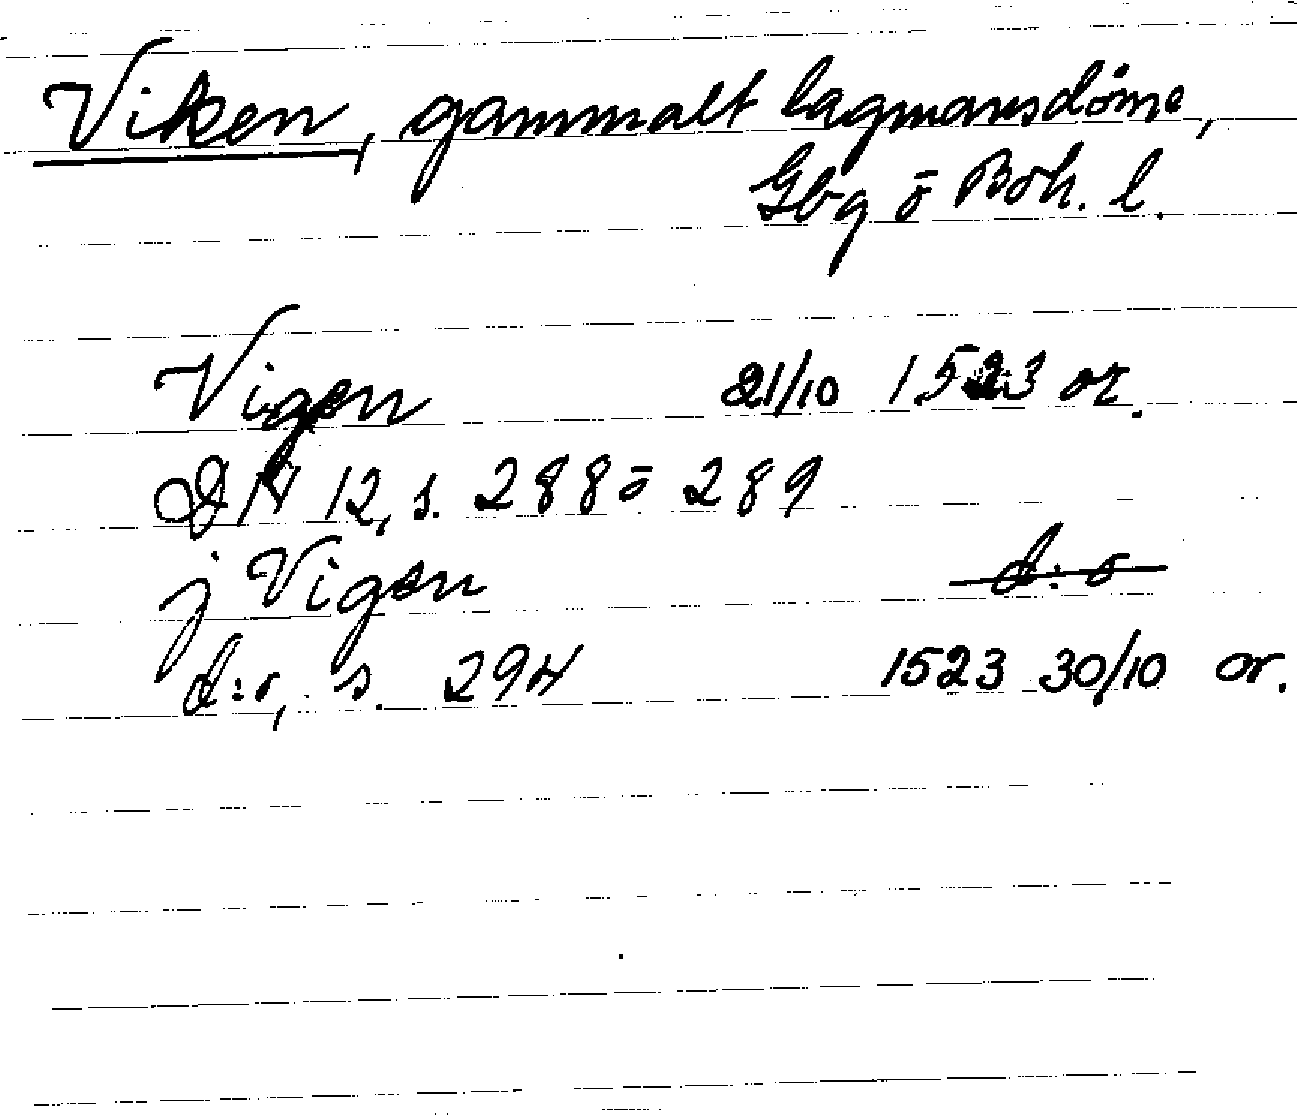 Viken, gammalt lagmansdöme,
Gbg o Boh. l.
Vigen 21/10 1523 or.
DN 12, s. 288 o 289
j Vigen d:o
d:o, s. 294 1523 30/10 or.